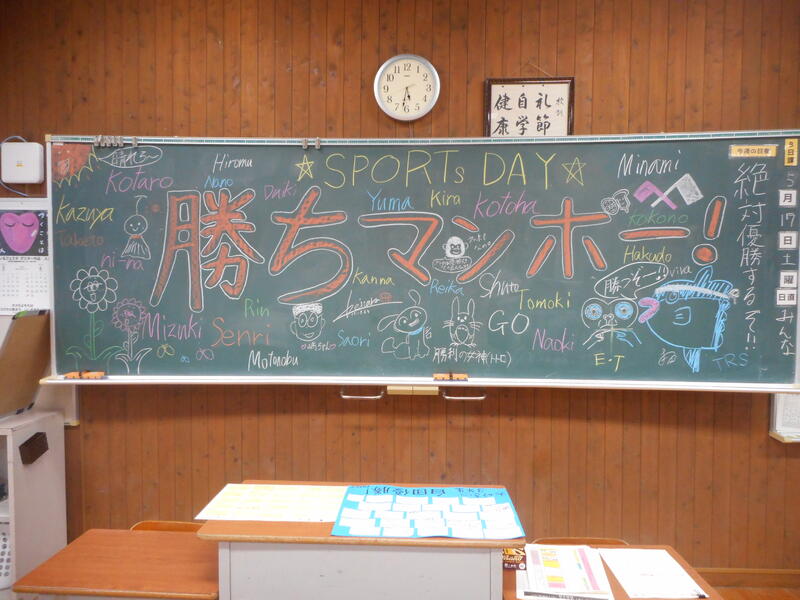 校訓
礼節
自学
健康
今週の目標
今日の課
SPORTs DAY
勝ちマンホー!
絶対優勝するぞ!!
5
月
17
日
土
曜
日直
みんな
晴れろ
Kotaro
Hiromu
Nano
Daiki
Yuma
Kira
Kotoha
Minami
Kazuya
Taketo
ni-na
Kokono
Hakudo
Kanna
Reika
Shuto
Tomoki
Rin
Mizuki
Senri
Saori
Motonobu
GO
Naoki
勝つぞー!!
勝利の女神(H・C)
E・T
TRS
自由優勝!